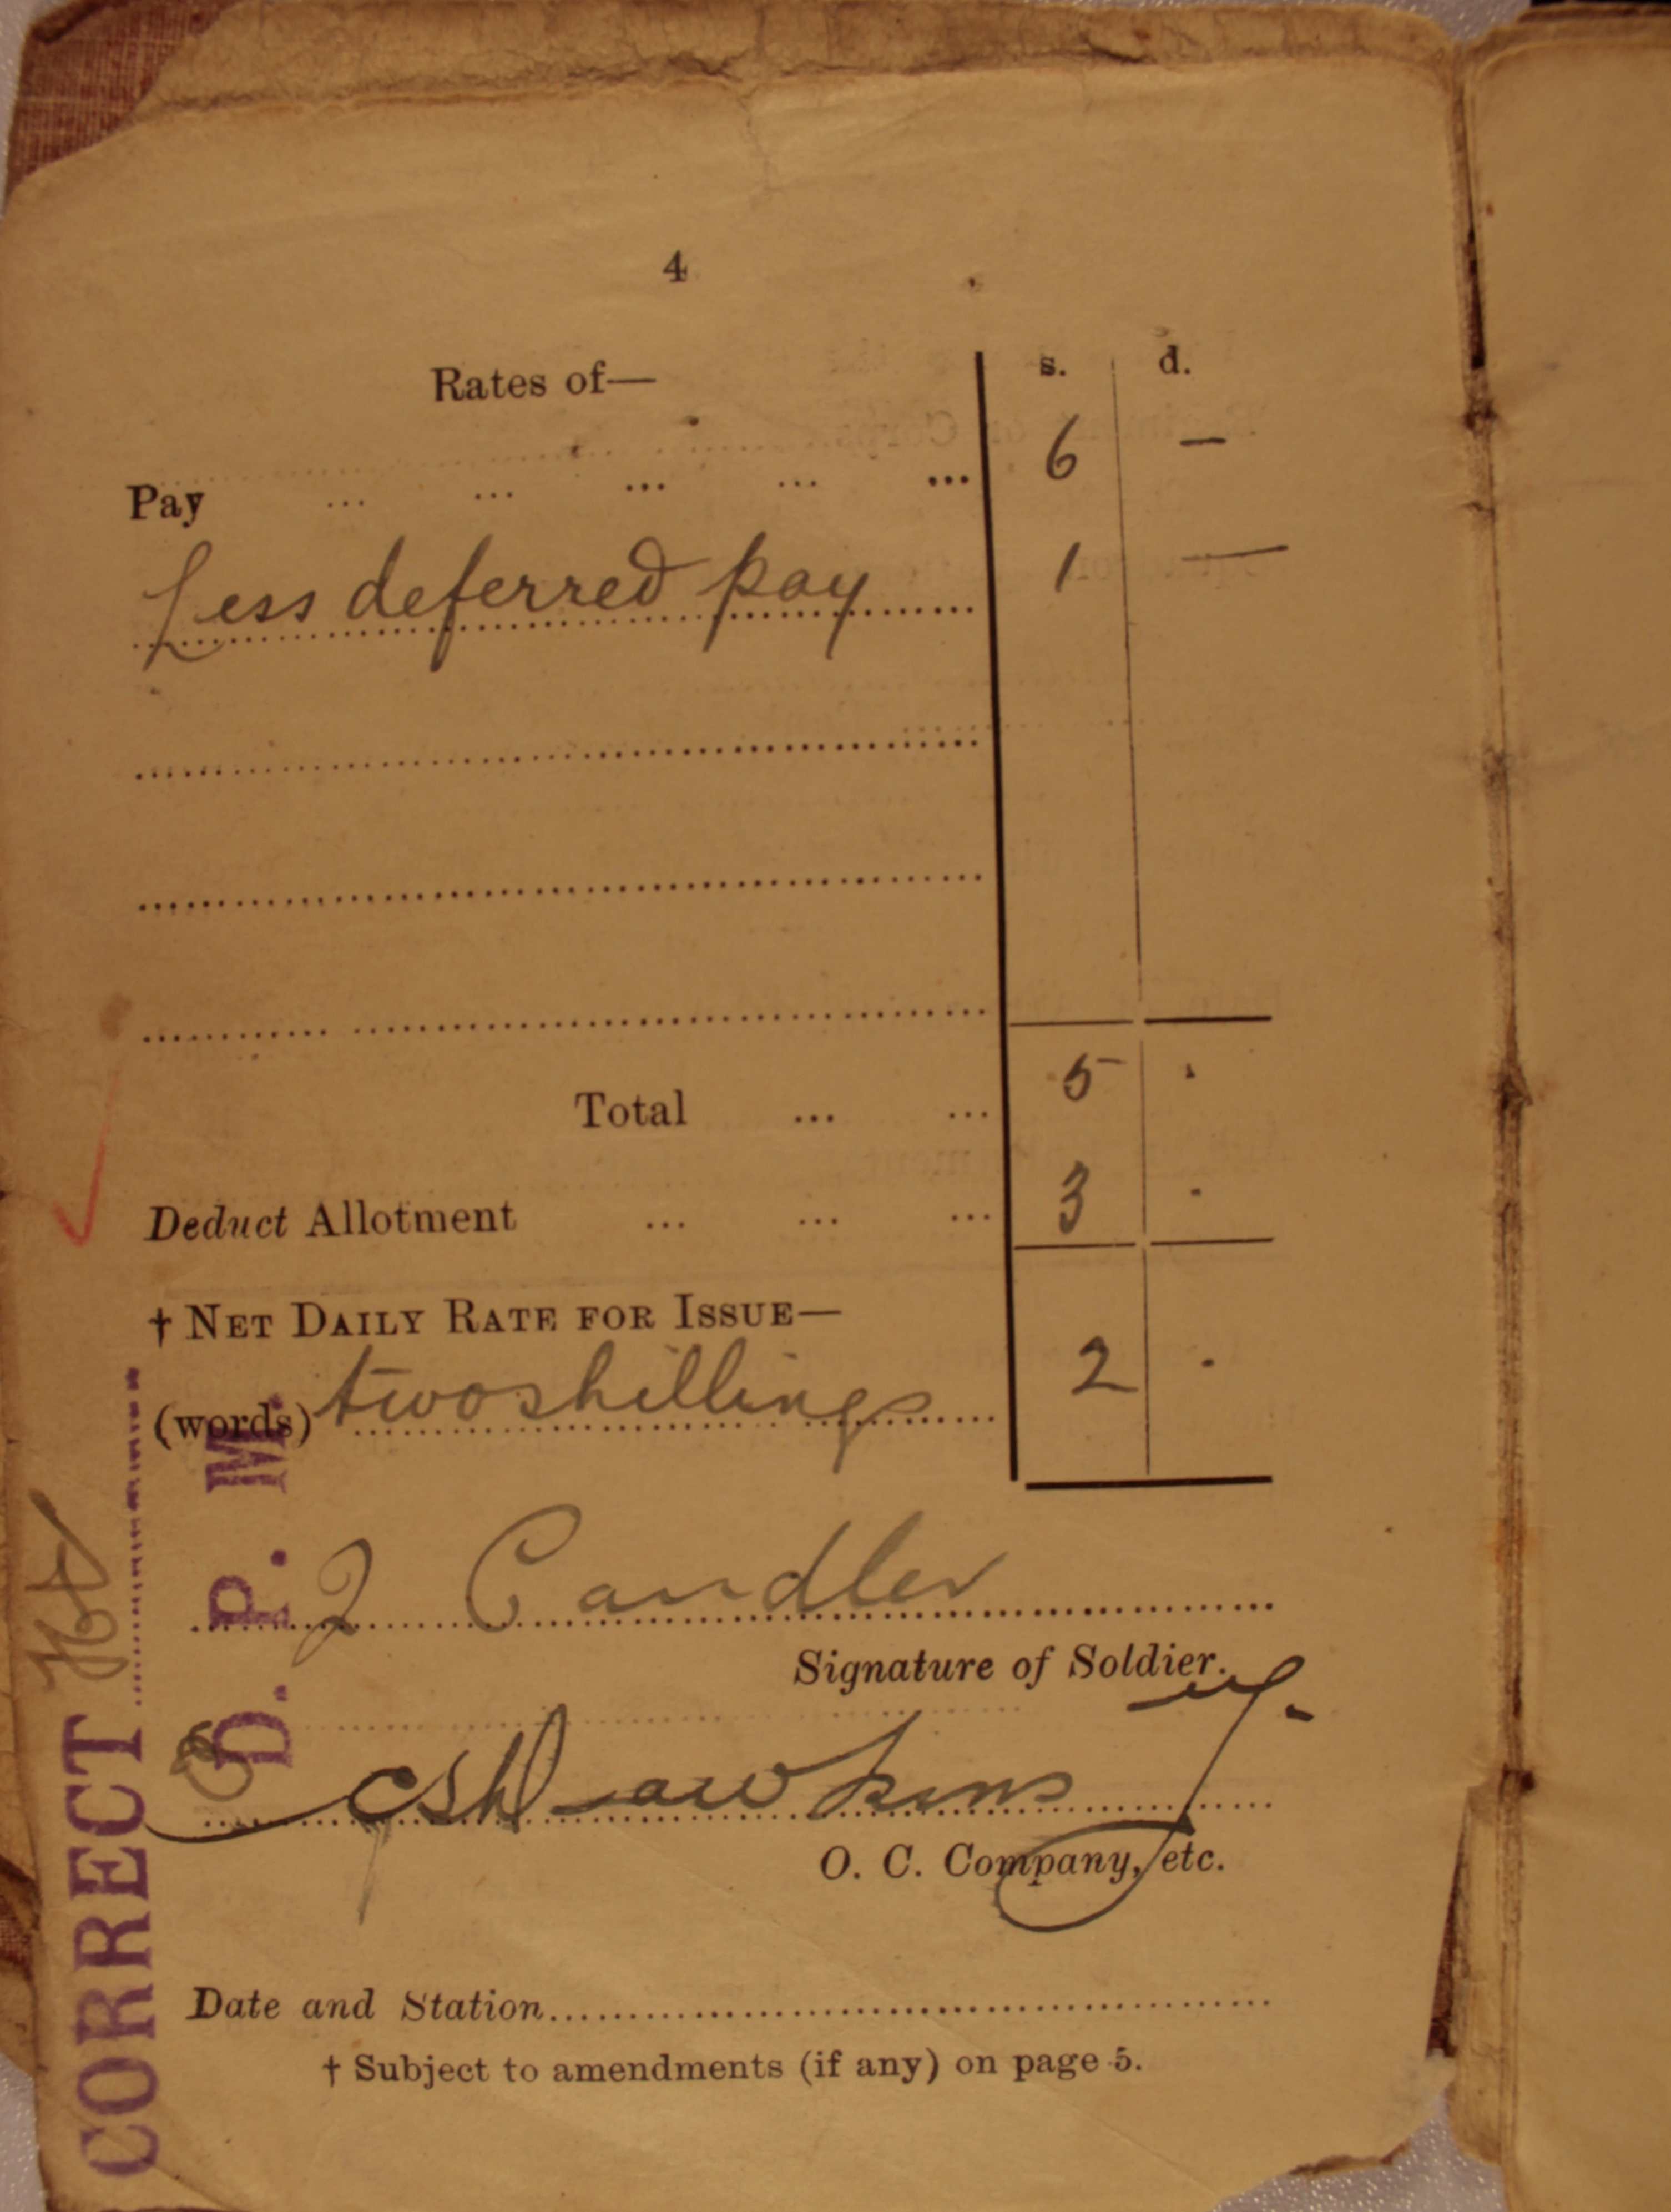 4
Rates of— s. d.
Pay ... ... ... ... ... 6 —
Less deferred pay 1 —
Total ... ... 5 .
Deduct Allotment ... ... ... 3 .
† NET DAILY RATE FOR ISSUE—
(words) two shillings 2 .
J Candler
Signature of Soldier.
CSHawkins
O. C. Company, etc.
Date and Station
† Subject to amendments (if any) on page 5.
CORRECT
D. P. M.